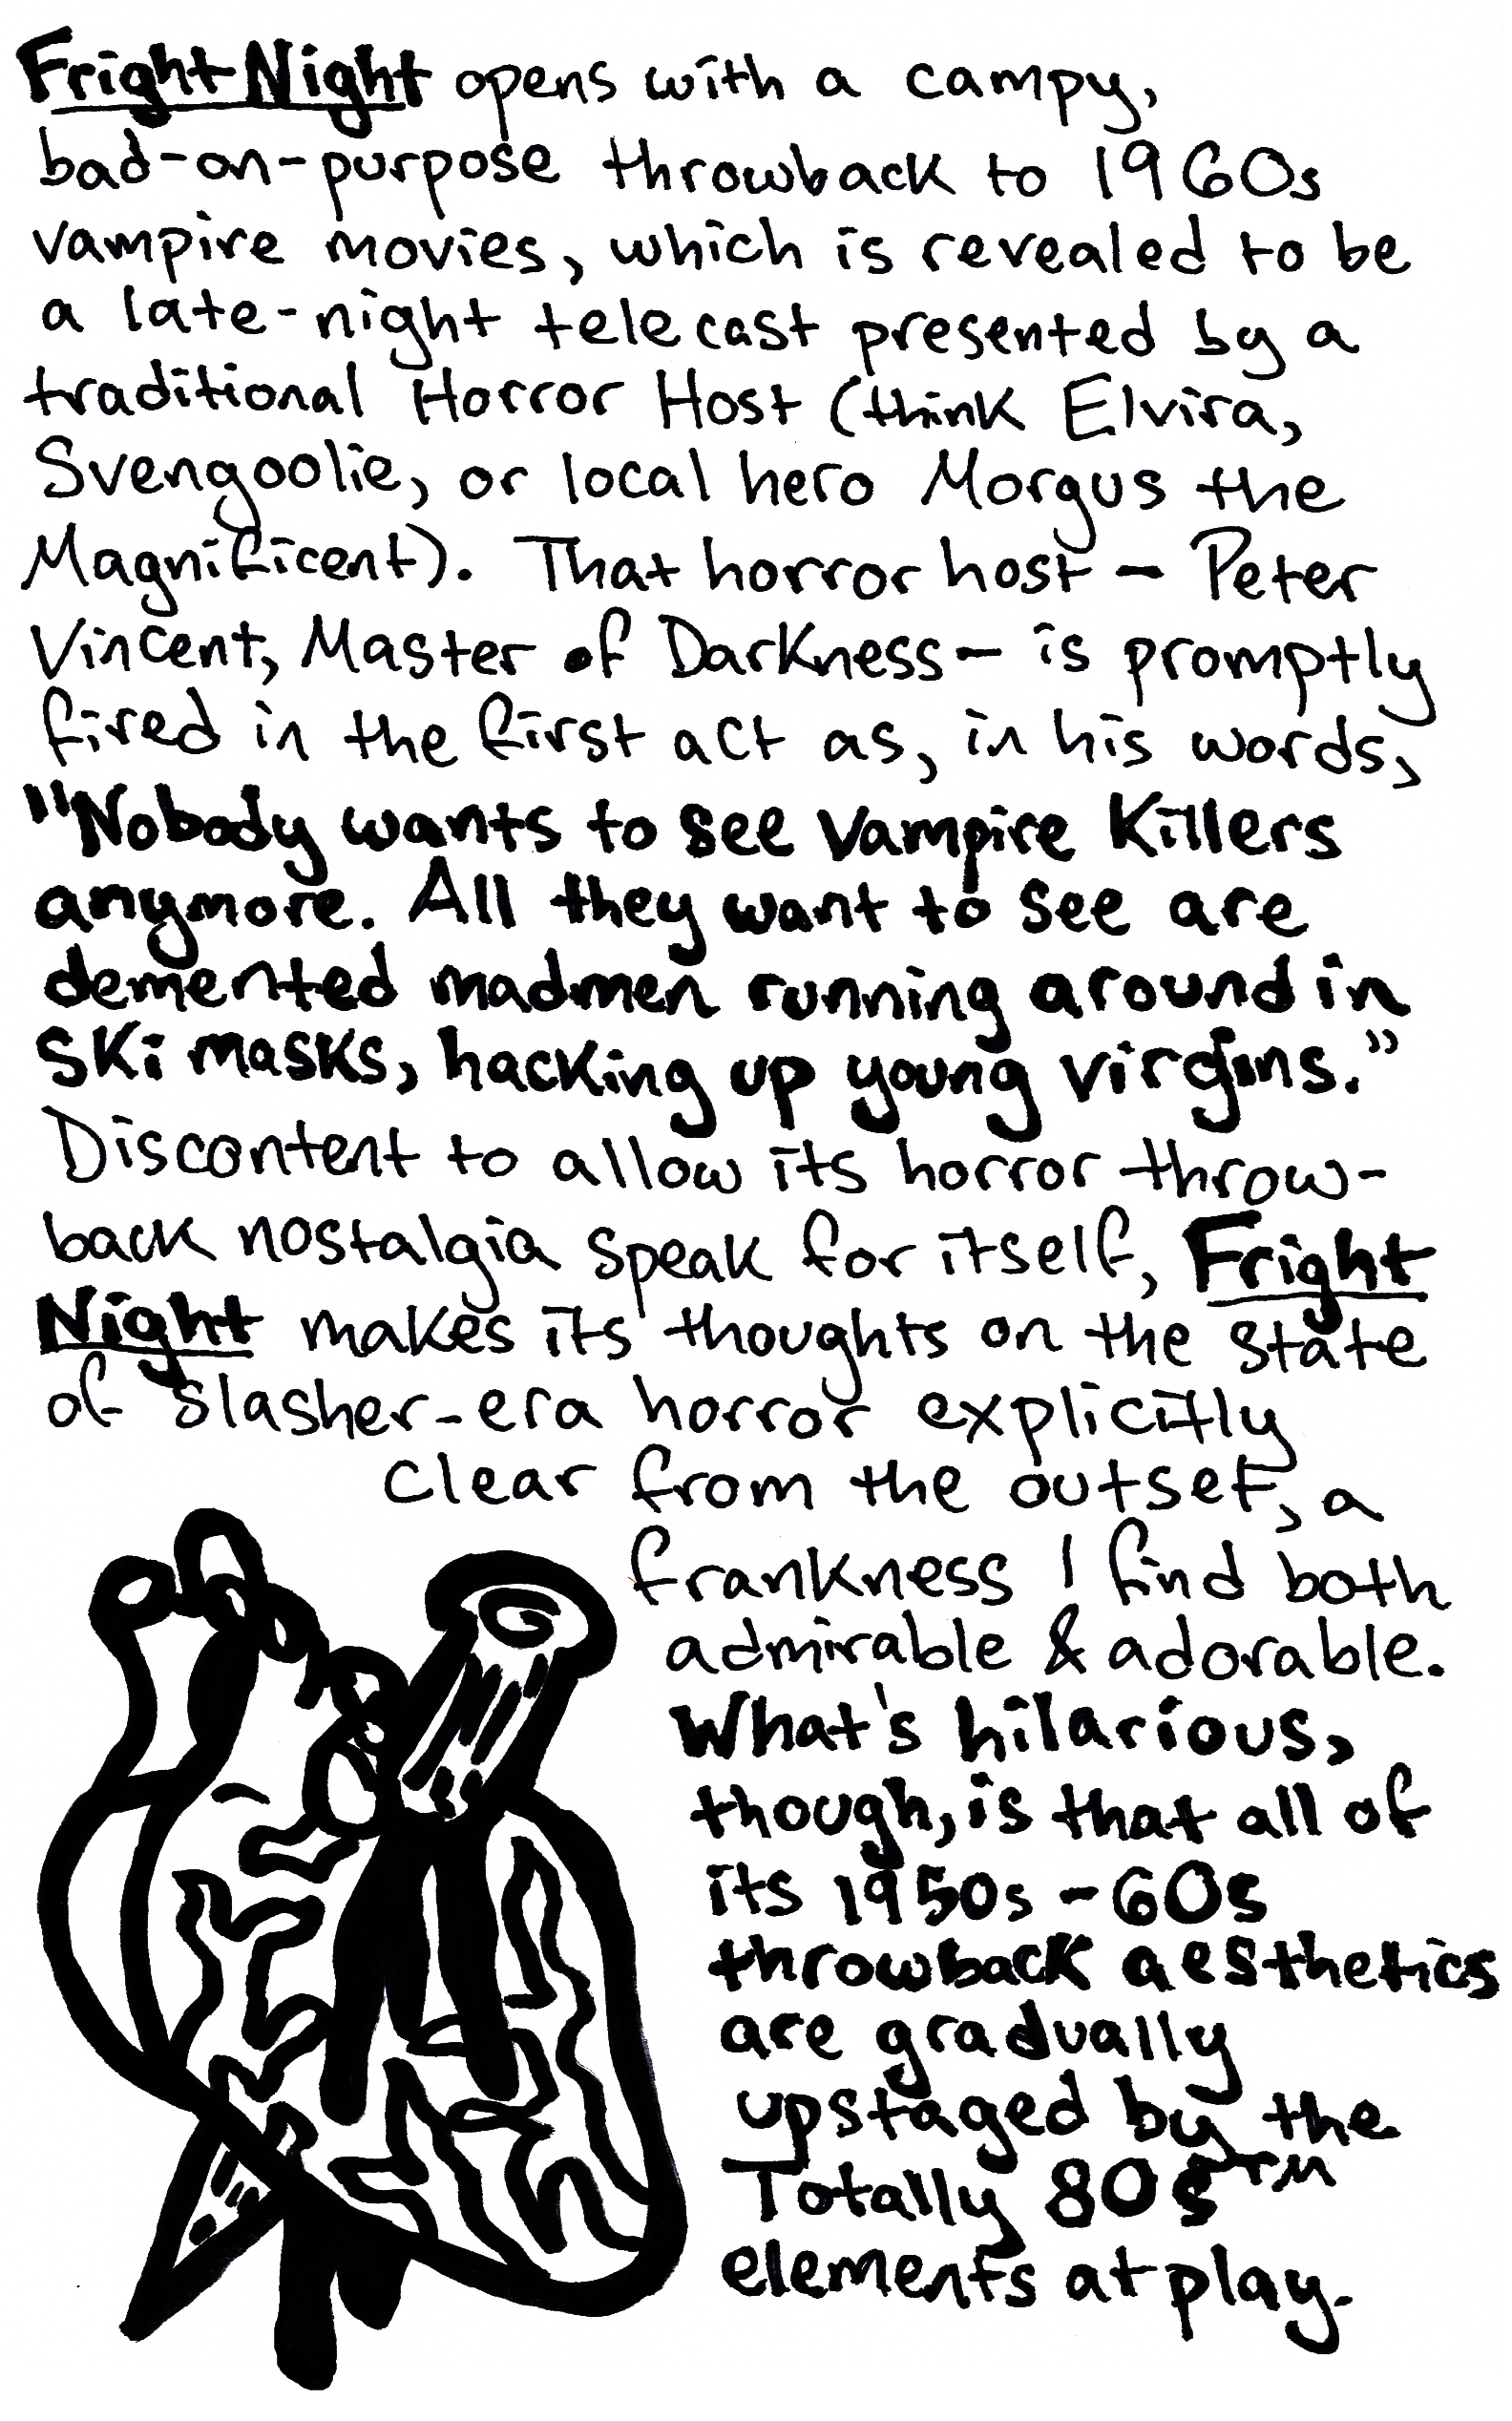 Fright Night opens with a campy,
bad-on-purpose throwback to 1960s
vampire movies, which is revealed to be
a late-night telecast presented by a
traditional Horror Host (think Elvira,
Svengoolie, or local hero Morgus the
Magnificent). That horror host - Peter
Vincent, Master of Darkness - is promptly
fired in the first act as, in his words,
"Nobody wants to see vampire killers
anymore. All they want to see are
demented madmen running around in
ski masks, hacking up young virgins."
Discontent to allow its horror throw-
back nostalgia speak for itself, Fright
Night makes its thoughts on the state
of slasher-era horror explicitly
clear from the outset, a
frankness I find both
admirable & adorable.
What's hilarious,
though, is that all of
its 1950s-60s
throwback aesthetics
are gradually
upstaged by the
Totally 80s™
elements at play.